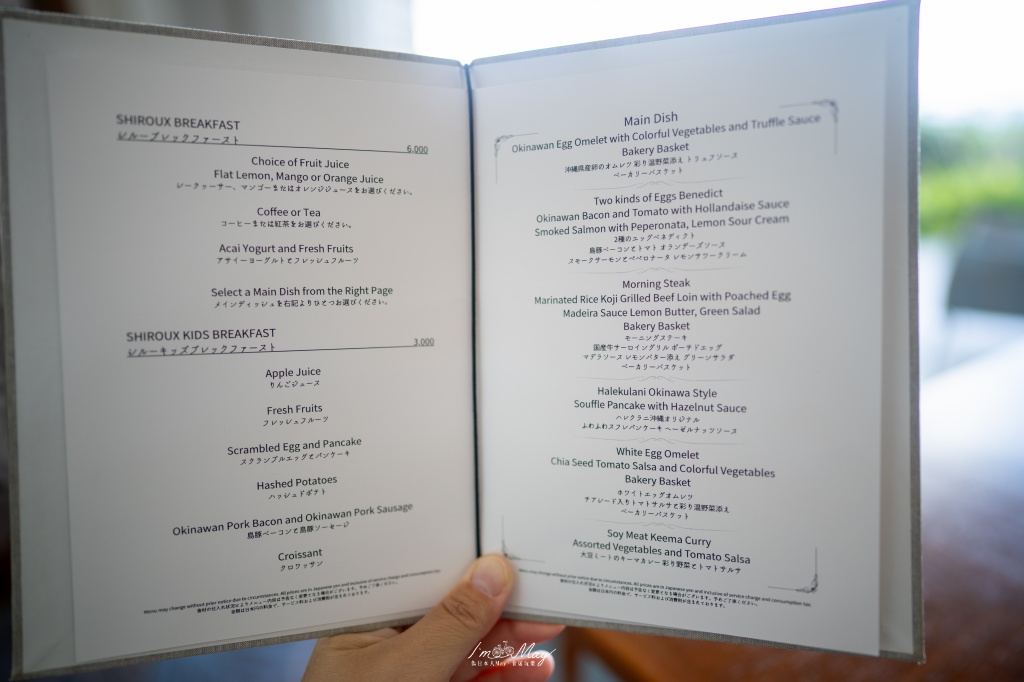 SHIROUX BREAKFAST
シルーブレックファースト
6,000
Choice of Fruit Juice
Flat Lemon, Mango or Orange Juice
シークヮーサー、マンゴーまたはオレンジジュースをお選びください。
Coffee or Tea
コーヒーまたは紅茶をお選びください。
Acai Yogurt and Fresh Fruits
アサイーヨーグルトとフレッシュフルーツ
Select a Main Dish from the Right Page
メインディッシュを右記よりひとつお選びください。
SHIROUX KIDS BREAKFAST
シルーキッズブレックファースト
3,000
Apple Juice
りんごジュース
Fresh Fruits
フレッシュフルーツ
Scrambled Egg and Pancake
スクランブルエッグとパンケーキ
Hashed Potatoes
ハッシュドポテト
Okinawan Pork Bacon and Okinawan Pork Sausage
島豚ベーコンと島豚ソーセージ
Croissant
クロワッサン
Menu may change without prior notice due to circumstances. All prices are in Japanese yen and inclusive of service charge and consumption tax.
食材の仕入れ状況によりメニュー内容は予告なく変更となる場合がございます。予めご了承ください。
金額は日本円の料金で、サービス料および消費税が含まれております。
Main Dish
Okinawan Egg Omelet with Colorful Vegetables and Truffle Sauce
Bakery Basket
沖縄県産卵のオムレツ 彩り温野菜添え トリュフソース
ベーカリーバスケット
Two kinds of Eggs Benedict
Okinawan Bacon and Tomato with Hollandaise Sauce
Smoked Salmon with Peperonata, Lemon Sour Cream
2種のエッグベネディクト
島豚ベーコンとトマト オランデーズソース
スモークサーモンとペペロナータ レモンサワークリーム
Morning Steak
Marinated Rice Koji Grilled Beef Loin with Poached Egg
Madeira Sauce Lemon Butter, Green Salad
Bakery Basket
モーニングステーキ
国産牛サーロイングリル ポーチドエッグ
マデラソース レモンバター添え グリーンサラダ
ベーカリーバスケット
Halekulani Okinawa Style
Souffle Pancake with Hazelnut Sauce
ハレクラニ沖縄オリジナル
ふわふわスフレパンケーキ ヘーゼルナッツソース
White Egg Omelet
Chia Seed Tomato Salsa and Colorful Vegetables
Bakery Basket
ホワイトエッグオムレツ
チアシード入りトマトサルサと彩り温野菜添え
ベーカリーバスケット
Soy Meat Keema Curry
Assorted Vegetables and Tomato Salsa
大豆ミートのキーマカレー 彩り野菜とトマトサルサ
Menu may change without prior notice due to circumstances. All prices are in Japanese yen and inclusive of service charge and consumption tax.
食材の仕入れ状況によりメニュー内容は予告なく変更となる場合がございます。予めご了承ください。
金額は日本円の料金で、サービス料および消費税が含まれております。
I'm May